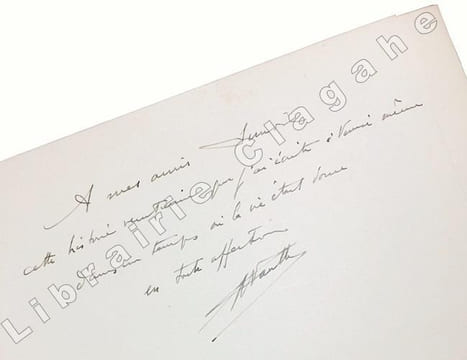 A mes amis
cette histoire vénitienne que j'ai écrite à Venise même
dans un temps où la vie était douce
en toute affection
Librairie Clagahe